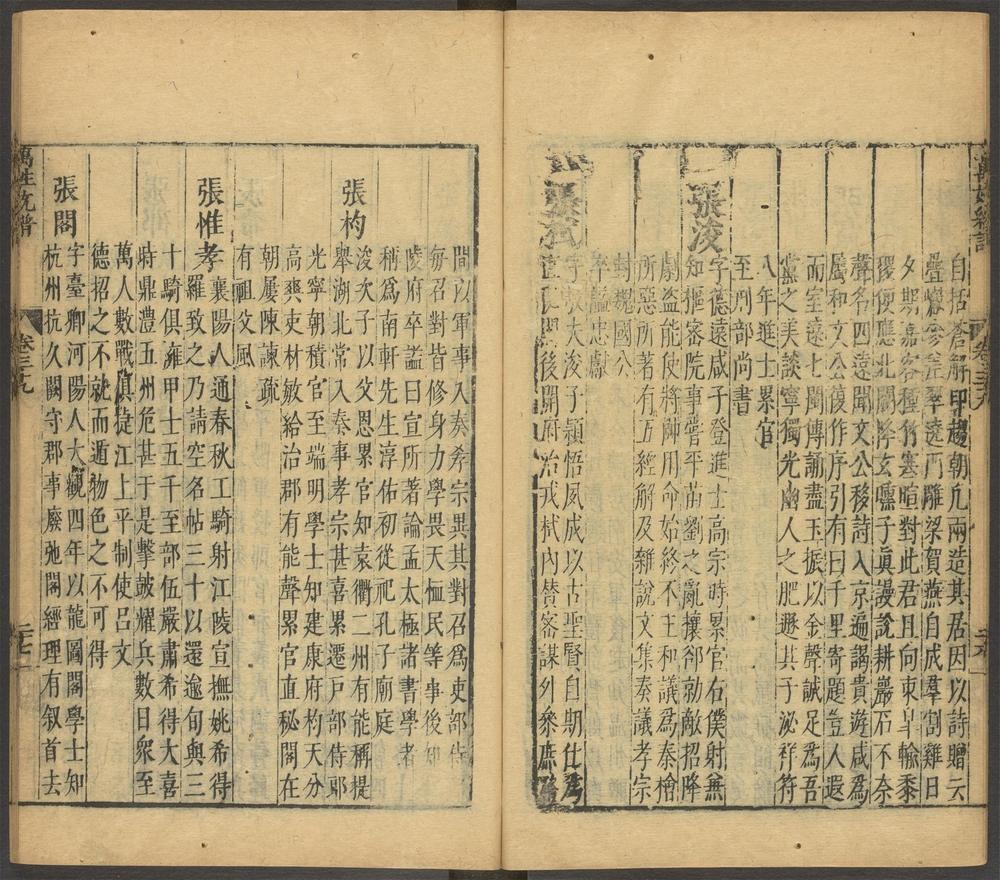 自括蒼解印趨朝凡兩造其居因以詩贈云
疊巘參差翠遶門雕梁賀燕自成羣割雞日
夕期嘉客種竹寒暄對此君且向東皐輸黍
稷便應北闕降玄纁子眞謾說耕巖石不奈
聲名四遠聞文公移詩入京遍謁貴遊咸爲
屬和文公復作序引有曰千里寄題豈人遐
而室遠七閩傳誦盡玉振以金聲誠足爲吾
黨之美談寧獨光幽人之肥遯其子泌祥符
八年進士累官
至刑部尚書
張浚
字德遠咸子登進士高宗時累官右僕射兼
知樞密院事嘗平苗劉之亂攘卻勍敵招降
劇盜能使將帥用命始終不主和議爲秦檜
所惡所著有五經解及雜說文集奏議孝宗
封魏國公
卒諡忠獻
張栻
字敬夫浚子穎悟夙成以古聖賢自期仕爲
直 閣後開府治戎栻內贊密謀外參庶務
間以軍事入奏孝宗異其對召爲吏部侍
每召對皆修身力學畏天恤民等事後知
陵府卒諡曰宣所著論孟太極諸書學者
稱爲南軒先生淳佑初從祀孔子廟庭
張杓
浚次子以父恩累官知袁衢二州有能稱提
舉湖北常入奏事孝宗甚喜累遷戶部侍郎
光寧朝積官至端明學士知建康府杓天分
高爽吏材敏給治郡有能聲累官直秘閣在
朝屢陳諫疏
有祖父風
張惟孝
襄陽人通春秋工騎射江陵宣撫姚希得
羅致之乃請空名帖三十以還逾旬與三
十騎俱擁甲士五千至部伍嚴肅希得大喜
時鼎澧五州危甚于是擊鼓耀兵數日衆至
萬人數戰俱捷江上平制使呂文
德招之不就而遁物色之不可得
張閣
字臺卿河陽人大觀四年以龍圖閣學士知
杭州杭久闕守郡事廢弛閣經理有叙首去
萬姓統譜
卷三九